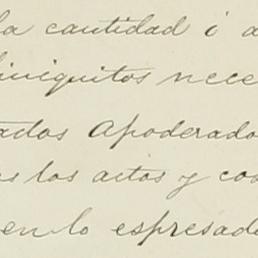 la cantidad i a
iniquitos nece
ados Apoderado
es los actos y cos
en lo espresado